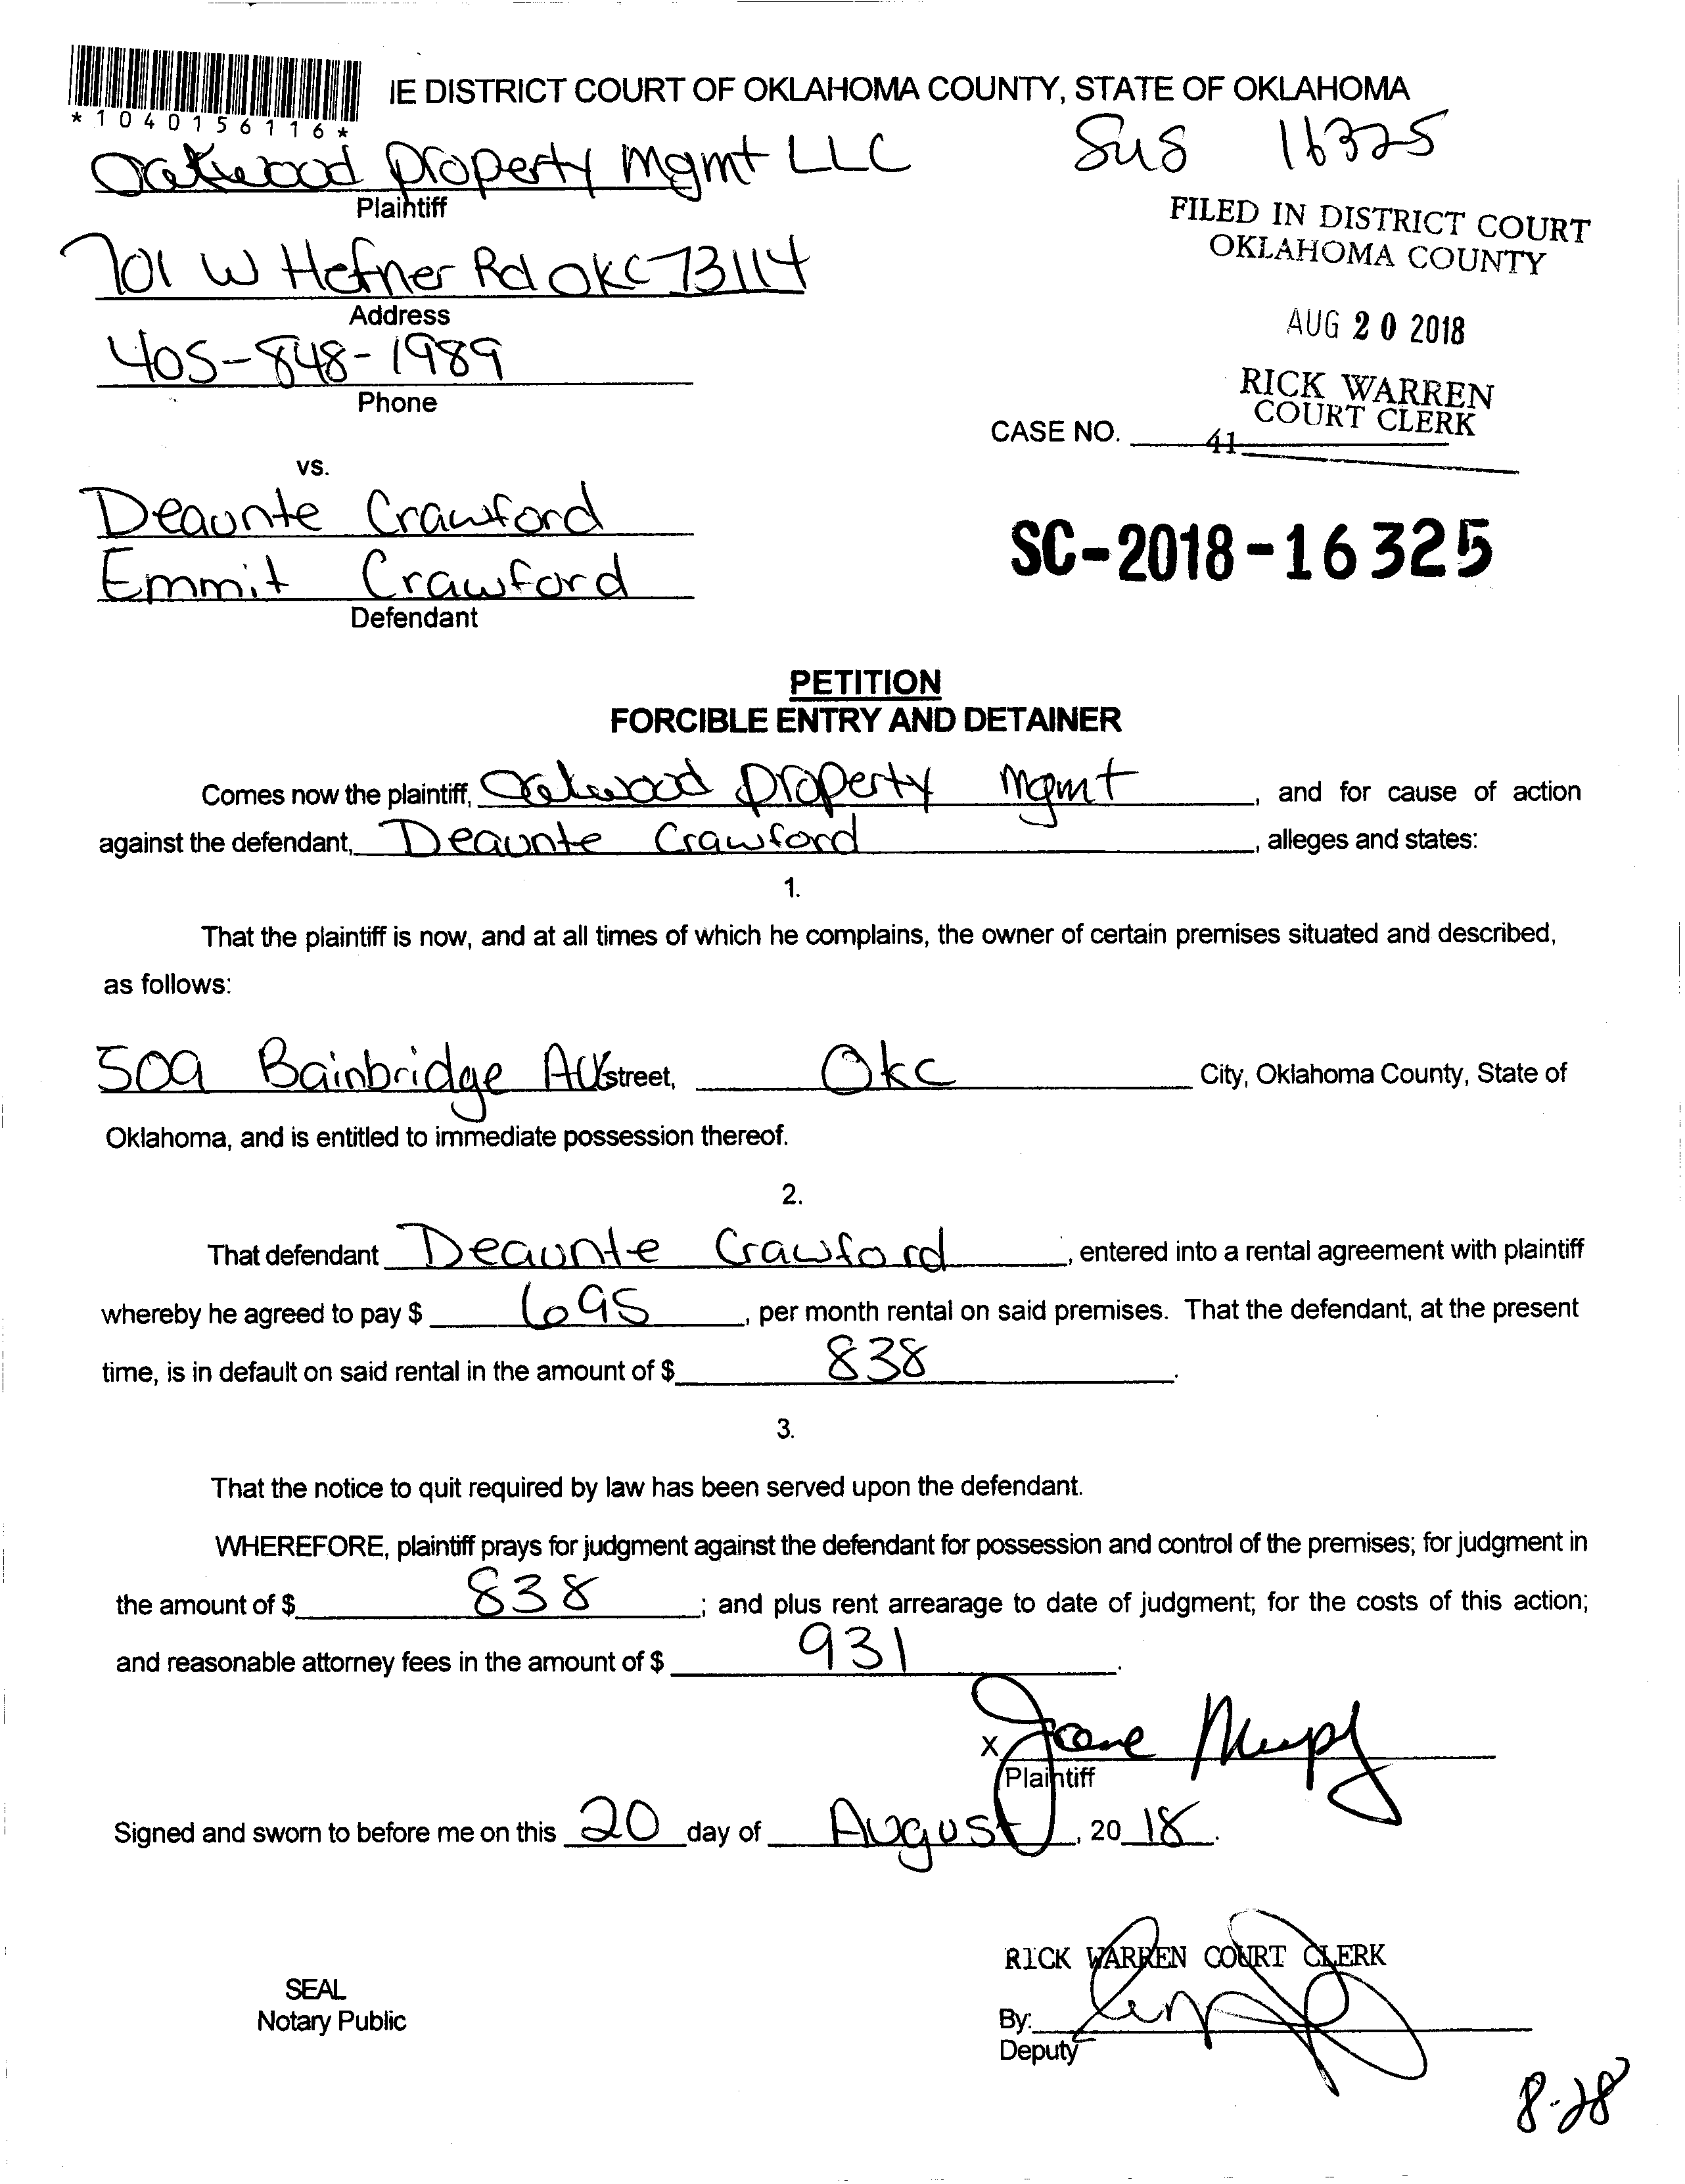 IE DISTRICT COURT OF OKLAHOMA COUNTY, STATE OF OKLAHOMA
*1040156116*
Oakwood Property Mgmt LLC
Plaintiff
16325
701 W Hefner Rd OKC 73114
Address
FILED IN DISTRICT COURT
OKLAHOMA COUNTY
405-848-1989
Phone
AUG 20 2018
RICK WARREN
COURT CLERK
CASE NO. 41
vs.
Deaunte Crawford
Emmit Crawford
Defendant
SC-2018-16325
PETITION
FORCIBLE ENTRY AND DETAINER
Comes now the plaintiff, Oakwood Property Mgmt, and for cause of action
against the defendant, Deaunte Crawford, alleges and states:
1.
That the plaintiff is now, and at all times of which he complains, the owner of certain premises situated and described,
as follows:
509 Bainbridge street, OKC City, Oklahoma County, State of
Oklahoma, and is entitled to immediate possession thereof.
2.
That defendant Deaunte Crawford, entered into a rental agreement with plaintiff
whereby he agreed to pay $ 695, per month rental on said premises. That the defendant, at the present
time, is in default on said rental in the amount of $ 838.
3.
That the notice to quit required by law has been served upon the defendant.
WHEREFORE, plaintiff prays for judgment against the defendant for possession and control of the premises; for judgment in
the amount of $ 838; and plus rent arrearage to date of judgment; for the costs of this action;
and reasonable attorney fees in the amount of $ 931.
X
Plaintiff
Signed and sworn to before me on this 20 day of August, 2018.
RICK WARREN COURT CLERK
SEAL
Notary Public
By:
Deputy
8-28